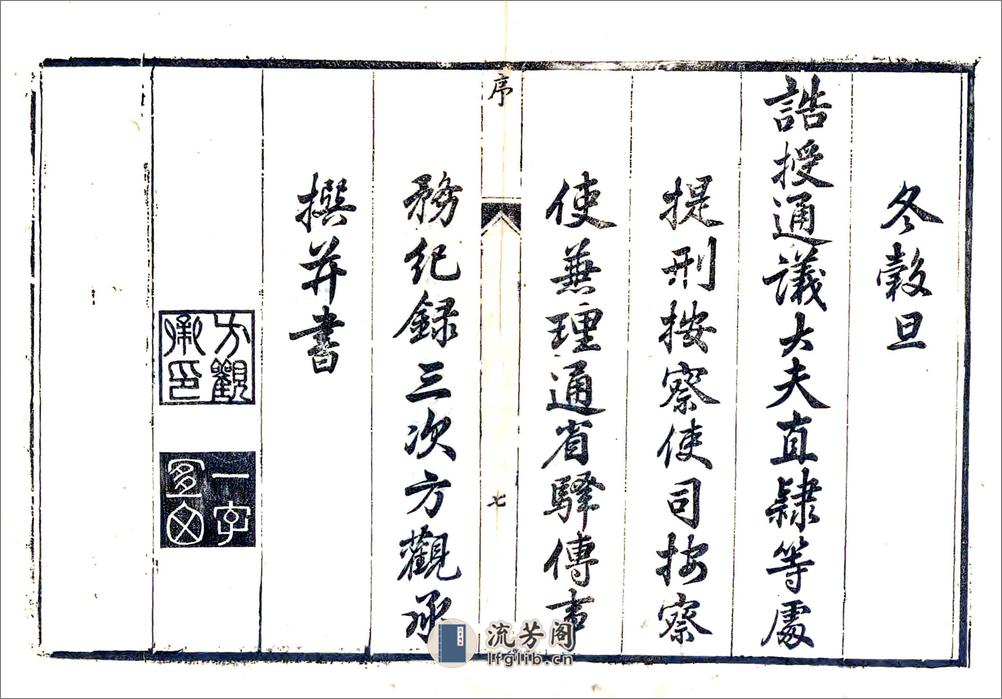 冬穀旦
誥授通議大夫直隸等處
提刑按察使司按察
使兼理通省驛傳事
序
七
務紀錄三次方觀承
撰并書
方觀承印
一字宜田
流芳阁
lfglib.cn